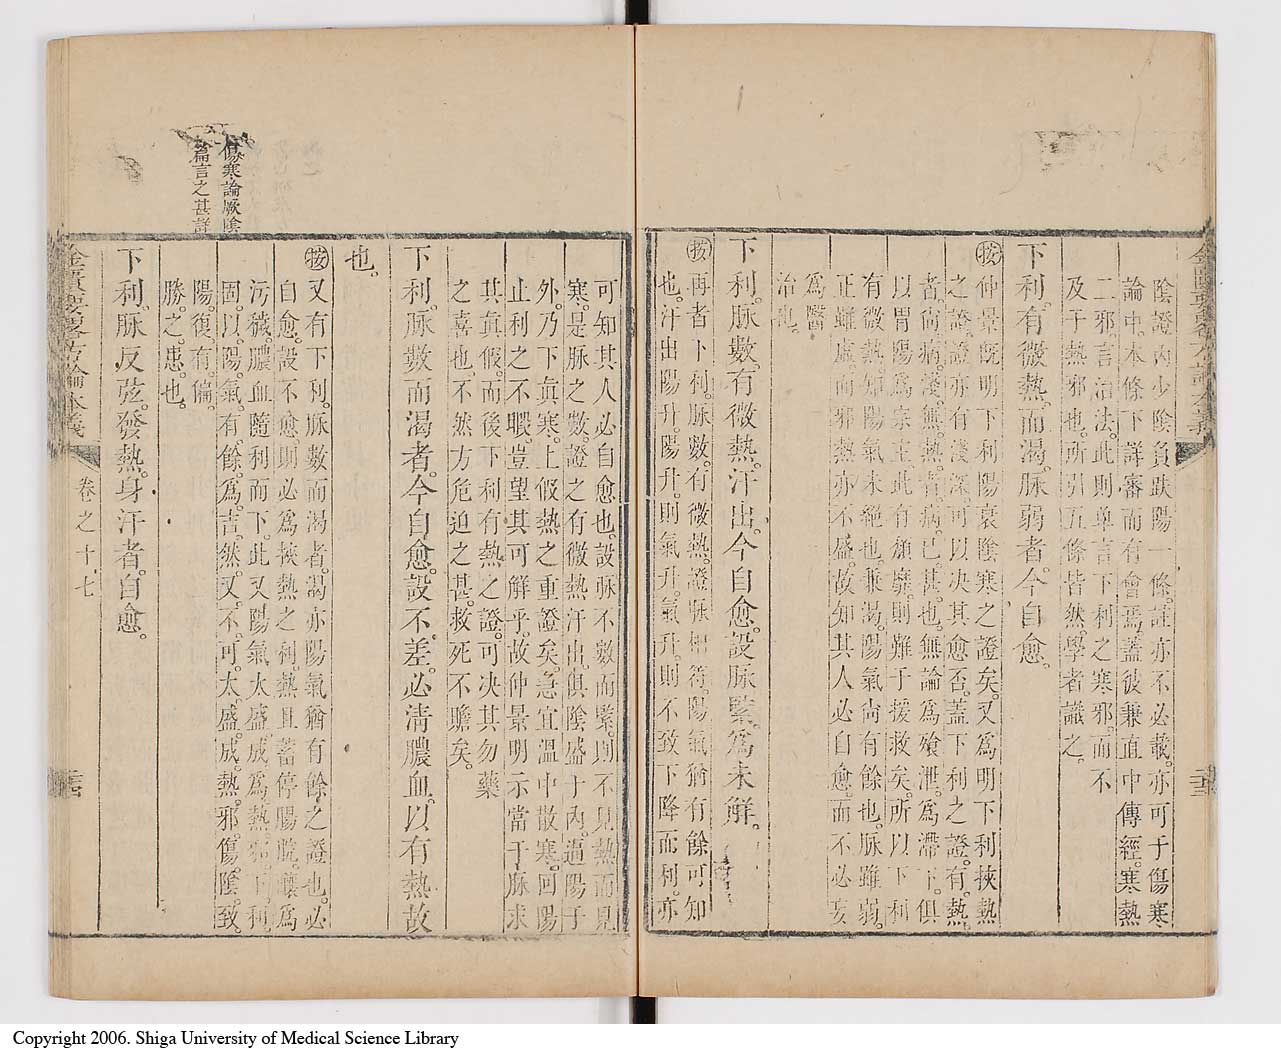 陰證內少陰負趺陽一條註亦不必載亦可于傷寒
論中本條下詳審而有會焉蓋彼兼直中傳經寒熱
二邪言治法此則單言下利之寒邪而不
及于熱邪也所引五條皆然學者識之
下利有微熱而渴脉弱者今自愈
按仲景既明下利陽衰陰寒之證矣又爲明下利挾熱
之證證亦有淺深可以决其愈否蓋下利之證有熱
者尙病淺無熱者病已甚也無論爲飱泄爲滯下俱
以胃陽爲宗主此有頹靡則難于援救矣所以下利
有微熱知陽氣未絕也兼渴陽氣尙有餘也脉雖弱
正雖虛而邪熱亦不盛故知其人必自愈而不必妄
爲醫
治也
下利脉數有微熱汗出今自愈設脉緊爲未解
按再者下利脉數有微熱證脉相符陽氣猶有餘可知
也汗出陽升陽升則氣升氣升則不致下降而利亦
可知其人必自愈也設脉不數而緊則不見熱而見
寒是脉之數證之有微熱汗出俱陰盛于內逼陽于
外乃下眞寒上假熱之重證矣急宜溫中散寒回陽
止利之不暇豈望其可解乎故仲景明示當于脉求
其眞假而後下利有熱之證可决其勿藥
之喜也不然方危迫之甚救死不贍矣
下利脉數而渴者今自愈設不差必清膿血以有熱故
也
按又有下利脉數而渴者渴亦陽氣猶有餘之證也必
自愈設不愈則必爲挾熱之利熱且蓄停腸脘釀爲
污穢膿血隨利而下此又陽氣太盛成爲熱邪下利
固以陽氣有餘爲吉然又不可太盛成熱邪傷陰致
陽復有偏
勝之患也
下利脉反弦發熱身汗者自愈
傷寒論厥陰
篇言之甚詳
金匱要畧方論本義
卷之十七
Copyright 2006. Shiga University of Medical Science Library